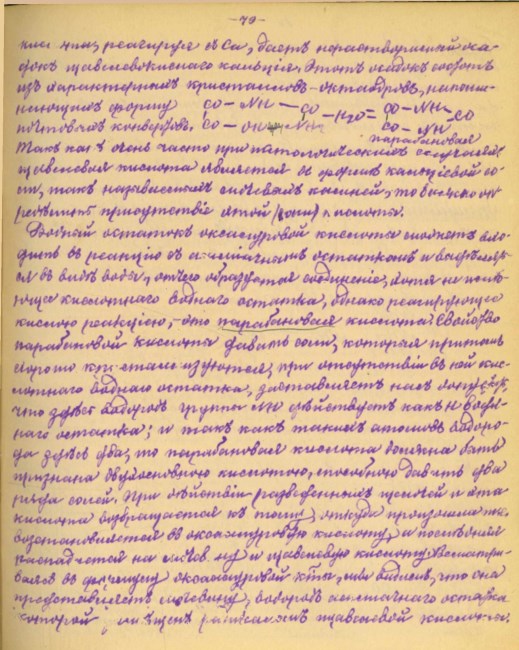 -79-
реагируя съ Ca, даетъ нерастворимый оса-
докъ щавелевокислаго кальція. Этотъ осадокъ состоитъ
изъ характерныхъ кристалловъ-октаэдровъ, напоми-
нающихъ форму CO - NH - CO - H2O = CO - NH - CO
почтовыхъ конвертовъ. CO - OH NH2 CO - NH
парабановая
Такъ какъ очень часто при патологическихъ
щавелевая кислота является въ формѣ кальціевой со-
ли, такъ называемыхъ камней, то
присутствіе этой кислоты.
Водный остатокъ оксалуровой кислоты можетъ вхо-
дить въ реакцію съ остаткомъ и выдѣлять-
ся въ видѣ воды, отчего образуется соединеніе, хотя не имѣ-
ющее кислотнаго воднаго остатка, однако реагирующее
кислою реакціею, - это парабановая кислота. Свойство
парабановой кислоты давать соли, которая притомъ
хорошо кристаллизуются, при отсутствіи въ ней кис-
лотнаго воднаго остатка, заставляетъ насъ допустить,
что здѣсь водородъ группы NH дѣйствуетъ какъ H вод-
наго остатка; и такъ какъ такихъ атомовъ водоро-
да здѣсь два, то парабановая кислота должна быть
признана двуосновною кислотою, способною давать два
ряда солей. При дѣйствіи разведенныхъ щелочей и эта
кислота возвращается къ тому, откуда произошла, т.е.
возстановляется въ оксалуровую кислоту, а послѣдняя
распадается на мочевину и щавелевую кислоту. Всматри-
ваясь въ формулу оксалуровой к-ты, мы видимъ, что она
представляетъ мочевину, водородъ амміачнаго остатка
которой щавелевой кислоты.